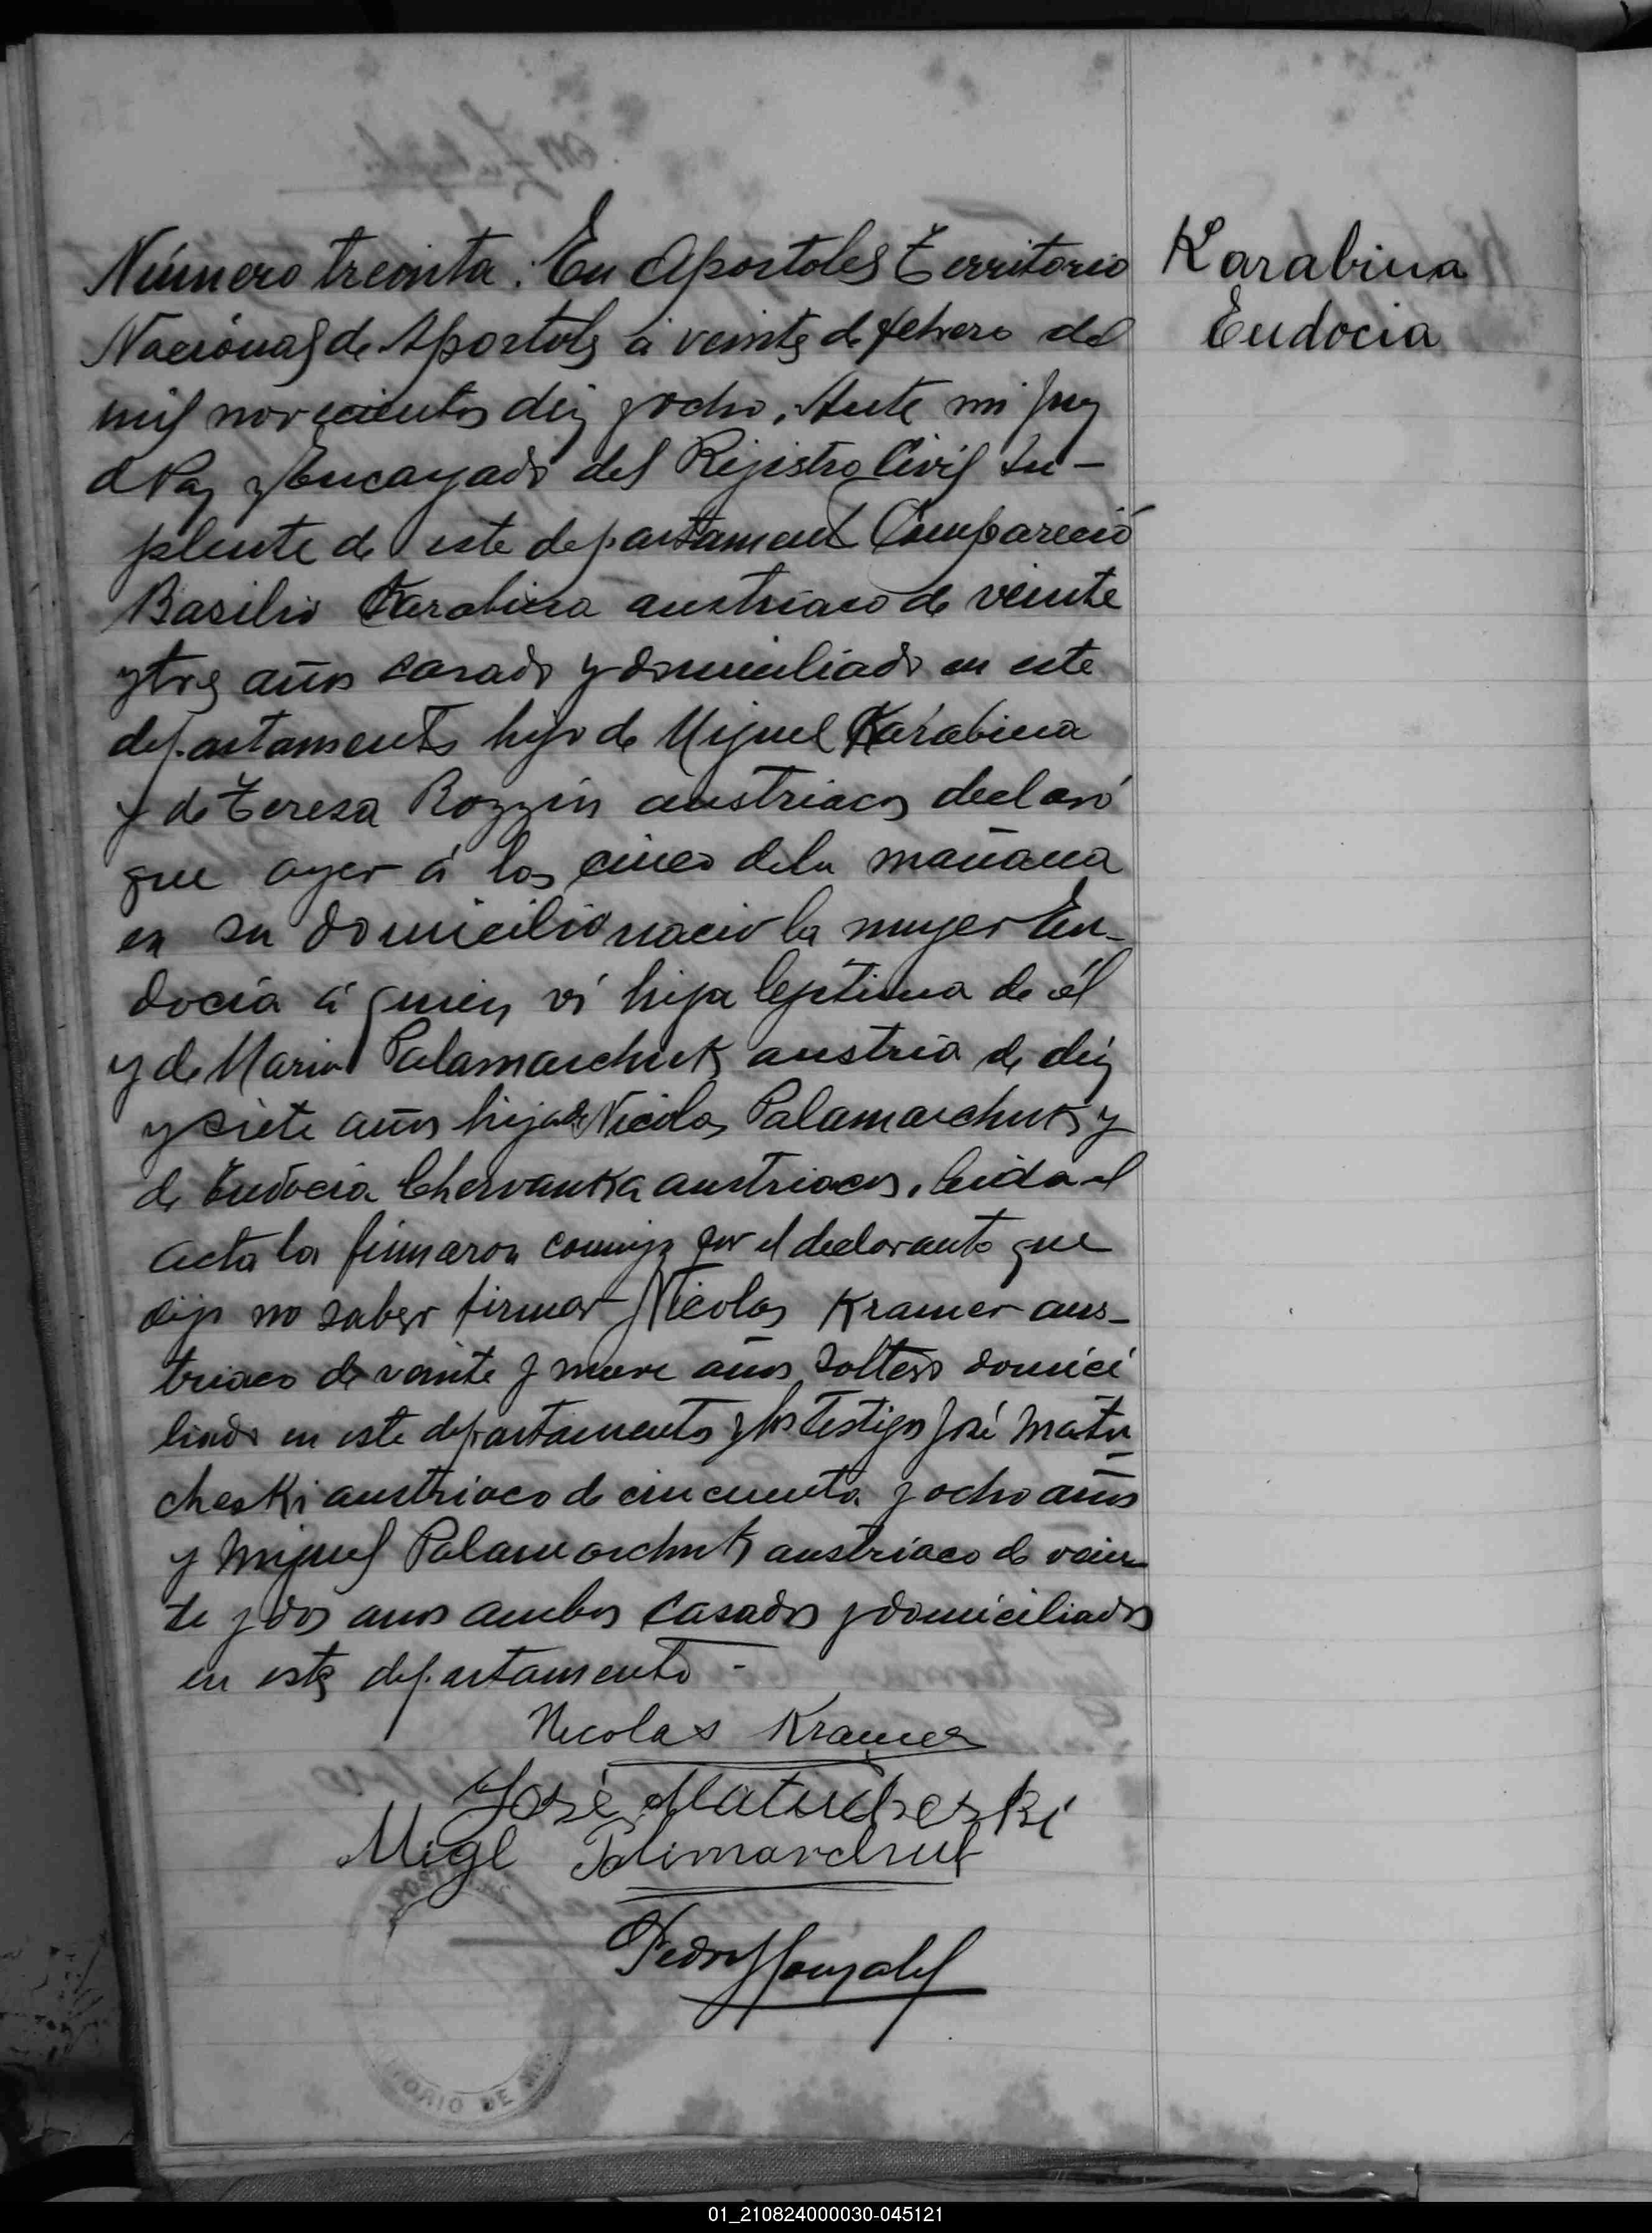 Karabina
Eudocia
Número treinta. En Apostoles Territorio
Nacional de Apostoles á veinte de febrero del
mil novecientos diez y ocho. Ante mi Juez
de Paz y Encargado del Rejistro Civil Su-
plente de este departamento Compareció
Basilio Karabina austriaco de veinte
y tres años casado y domiciliado en este
departamento hijo de Miguel Karabina
y de Teresa Rozzin austriacos declaró
que ayer á las cinco de la mañana
en su domicilio nació la mujer Eu-
docia á quien ví hija lejitima de él
y de Maria Palamarchuk austria de diez
y siete años hija de Nicolas Palamarchuk y
de Eudocia Chervanka austriacos. Leida el
acta la firmaron conmigo por el declarante que
dijo no saber firmar Nicolas Kramer aus-
triaco de veinte y nueve años soltero domici
liado en este departamento y los testigos José Matu
cheski austriaco de cincuenta y ocho años
y Miguel Palamarchuk austriaco de vein-
te y dos anos ambos casados y domiciliados
en este departamento -
Nicolas Kramer
José Matucheski
Migl Palimarchuk
Pedro Gonzalez
APOSTOLES
TORIO DE MI
01_210824000030-045121